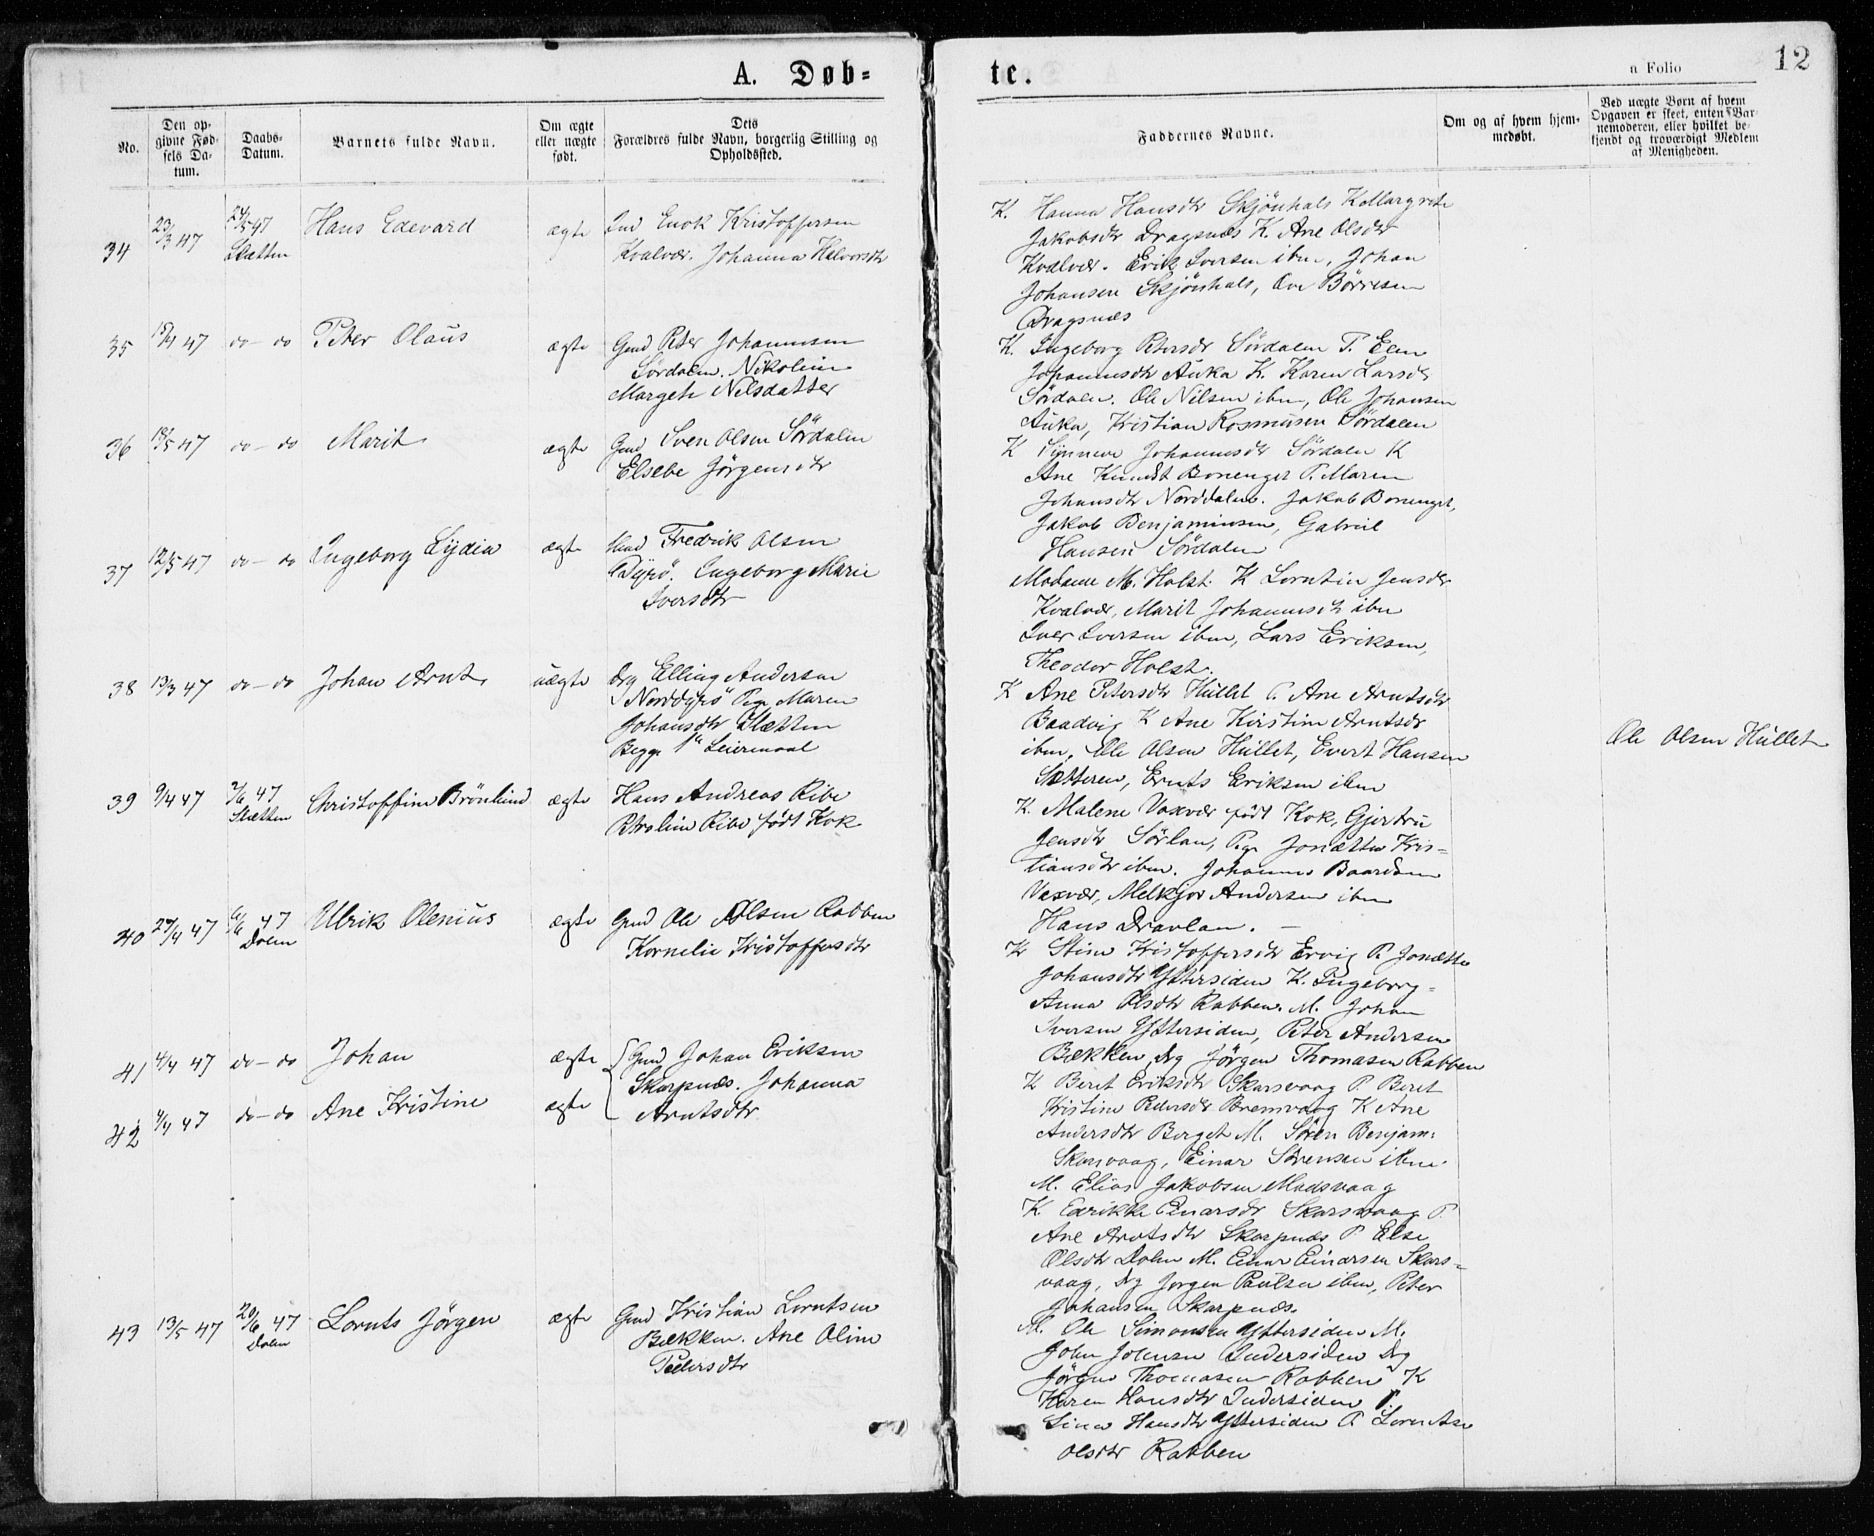 A. Døb=
te.
a Folio
12
No.
Den op-
givne Fød-
sels Da-
tum.
Daabs-
Datum.
Barnets fulde Navn.
Om ægte
eller uægte
født.
Dets
Forældres fulde Navn, borgerlig Stilling og
Opholdssted.
Faddernes Navne.
Om og af hvem hjem-
medøbt.
Ved uægte Børn af hvem
Opgaven er skeet, enten Bar-
nemoderen, eller hvilket be-
kjendt og troværdigt Medlem
af Menigheden.
34
23/3 47
24/5 47
Slætten
Hans Edevard
ægte
Ind Enok Kristoffersen
Kvalvær. Johanna Halvorsdtr
K. Hanna Hansdtr Skjönhals K Margrete
Jakobsdtr Dragsnæs K. Ane Olsdtr
Kvalvær. Erik Iversen ibm, Johan
Johansen Skjönhals, Ove Börresen
Dragsnæs
35
15/4 47
do - do
Peter Olaus
ægte
Gmd Peter Johannesen
Sördalen. Nikoline
Margete Nilsdatter
K. Ingeborg Petersdtr Sördalen P. Elen
Johannesdtr Auka K. Karen Larsdtr
Sördalen. Ole Nilsen ibm, Ole Johansen
Auka, Kristian Rasmusen Sördalen
36
18/5 47
do - do
Marit
ægte
Gmd Sven Olsen Sördalen
Elsebe Jørgensdtr
K Synneve Johannesdtr Sördalen K
Ane Knudst Bonenget P. Maren
Johansdtr Norddalen. Jakob Bonenget,
Jakob Benjaminsen, Gabriel
Hansen Sördalen
37
12/5 47
do - do
Ingeborg Lydia
ægte
Fredrik Olsen
Dyrö. Ingeborg Marie
Iversdtr
Madame M. Holst. K Lorntin Jensdtr
Kvalvær, Marit Johannesdtr ibm
Iver Iversen ibm, Lars Eriksen,
Theodor Holst.
38
13/3 47
do - do
Johan Arnt
uægte
Drg Elling Andersen
Norddyrö Pige Maren
Johansdtr Slætten
Begge 1ste Leiermaal
K Ane Petersdtr Hullet P. Ane Arntsdtr
Baadvig K Ane Kirstine Arntsdtr
ibm, Ole Olsen Hullet, Evert Hansen
Sætteren, Ernts Eriksen ibm
Ole Olsen Hullet
39
9/4 47
2/6 47
Slætten
Christoffine Brönlund
ægte
Hans Andreas Ribe
Petroline Ribe født Kok
K. Malene Vaxvær født Kok, Gjertru
Jensdtr Sörlan, Pige Jonætte Kris=
tiansdtr ibm. Johannes Baardsen
Vaxvær, Melkjor Andersen ibm
Hans Dravlan. -
40
27/4 47
6/6 47
Dolm
Ulrik Olenius
ægte
Gmd Ole Olsen Rabben
Kornelie Kristoffersdtr
K Stine Kristoffersdtr Ervig P. Jonætte
Johansdtr Yttersiden K. Ingeborg=
Anna Olsdtr Rabben. M. Johan
Iversen Yttersiden, Peter Andersen
Bækken, Drg Jørgen Thomasen Rabben
41
4/4 47
do - do
Johan
ægte
Gmd Johan Eriksen
Skarpnæs. Johanna
Arntsdtr
K Beret Eriksdtr Skarsvaag P. Beret
Kristine Pedersdtr Bremvaag K Ane
Andersdtr Berget M. Sören Benjam:
Skarsvaag, Einar Sørensen ibm.
M. Elias Jakobsen Madsvaag
42
4/4 47
do - do
Ane Kristine
ægte
K. Edrikke Einarsdtr Skarsvaag P.
Ane Arntsdtr Skarpnæs P Else
Olsdtr Dolm M. Einar Einarsen Skars=
vaag, Drg Jørgen Paulsen ibm, Peter
Johansen Skarpnæs.
43
13/5 47
20/6 47
Dolm
Lornts Jörgen
ægte
Gmd Kristian Lorntsen
Bækken. Ane Oline
Pedersdtr
M. Ole Simonsen Yttersiden M.
John Johnsen Indersiden Drg
Jörgen Thomasen Rabben K
Karen Hansdtr Indersiden P.
Lina Hansdtr Yttersiden P. Lorntse
Olsdtr Rabben